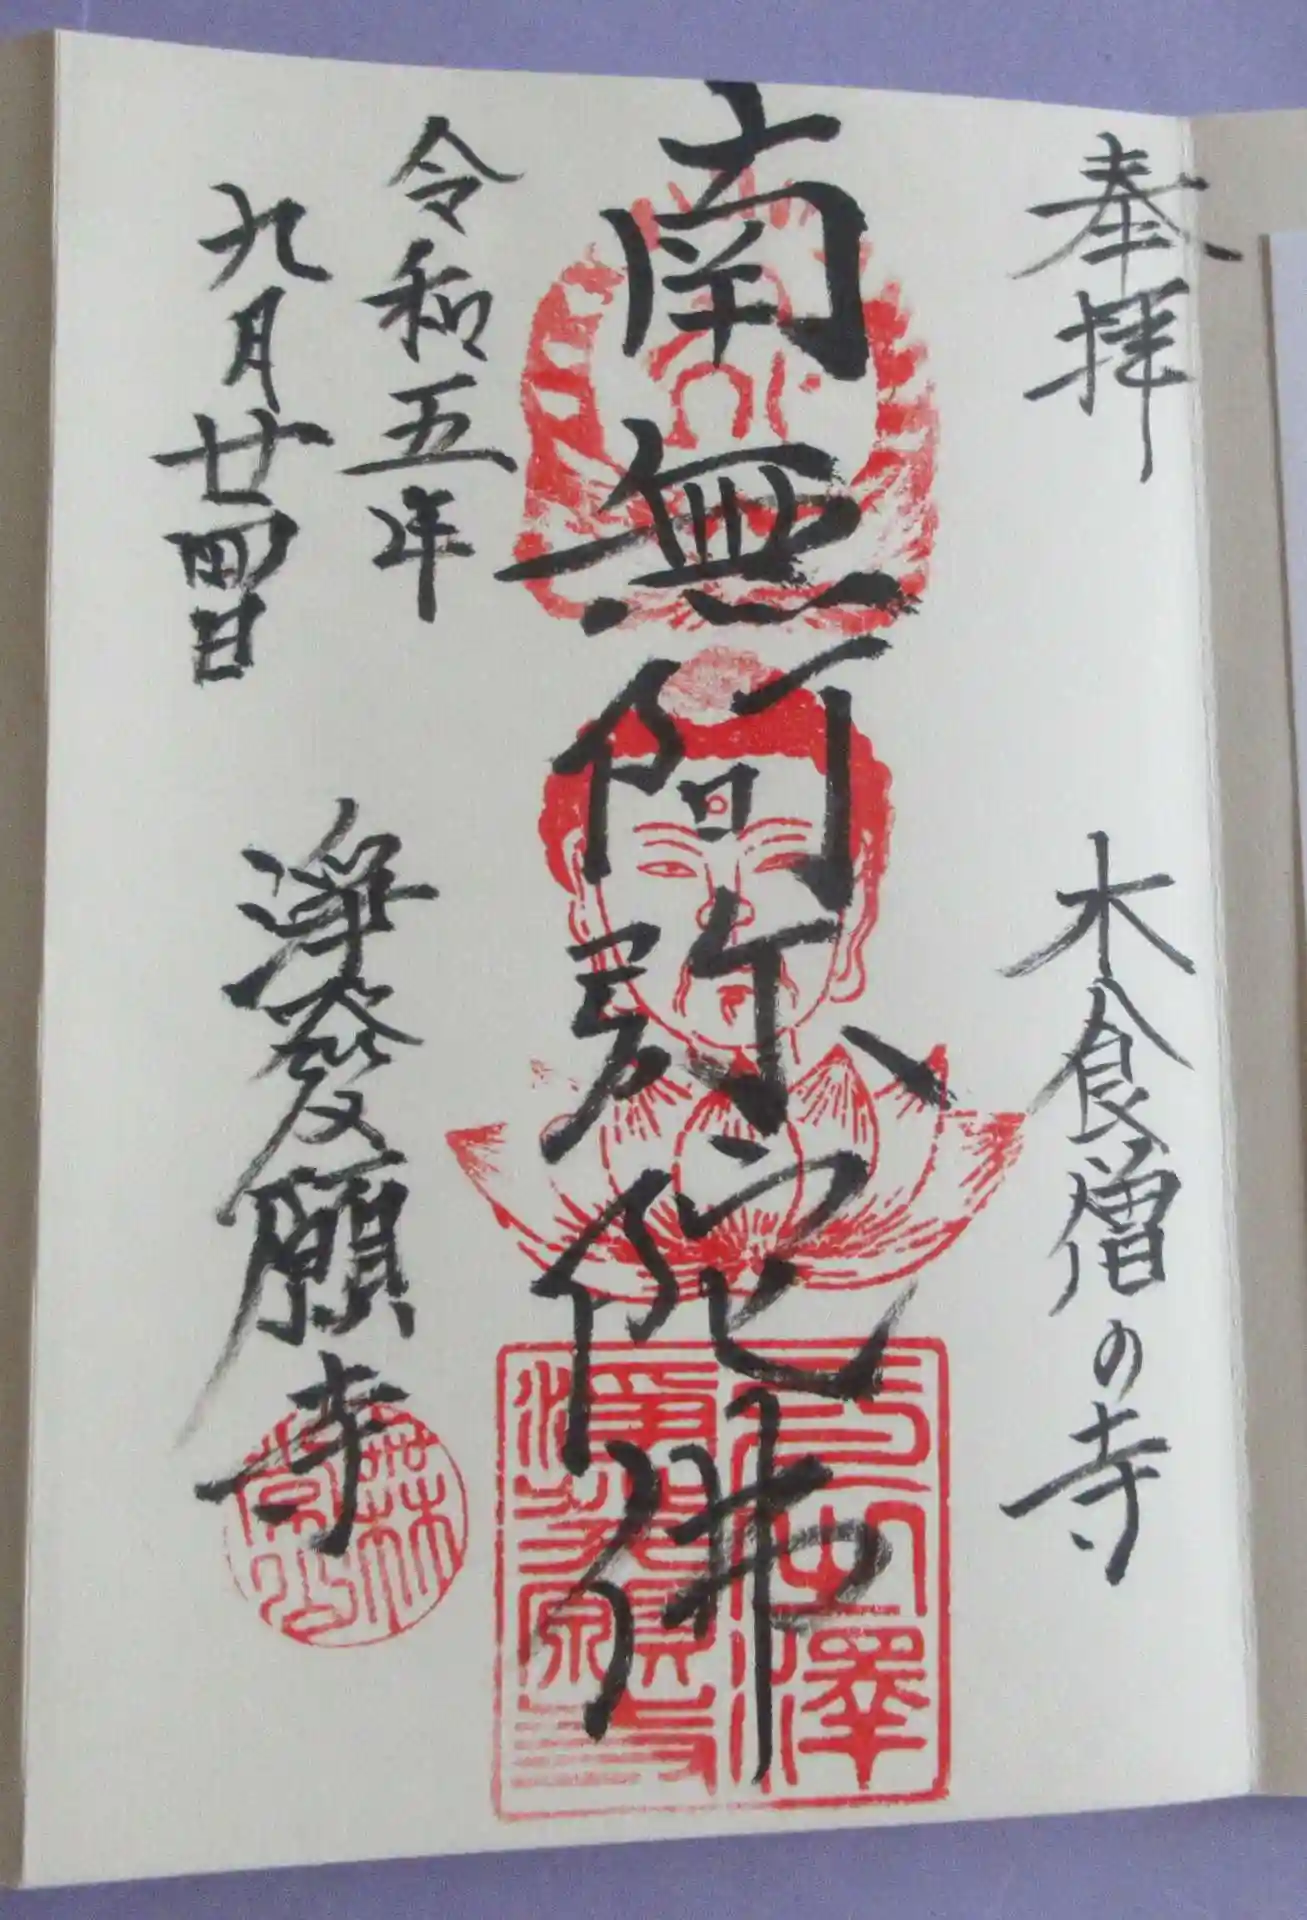 奉拝
木食僧の寺
南無阿弥陀佛
令和五年
九月廿四日
浄發願寺